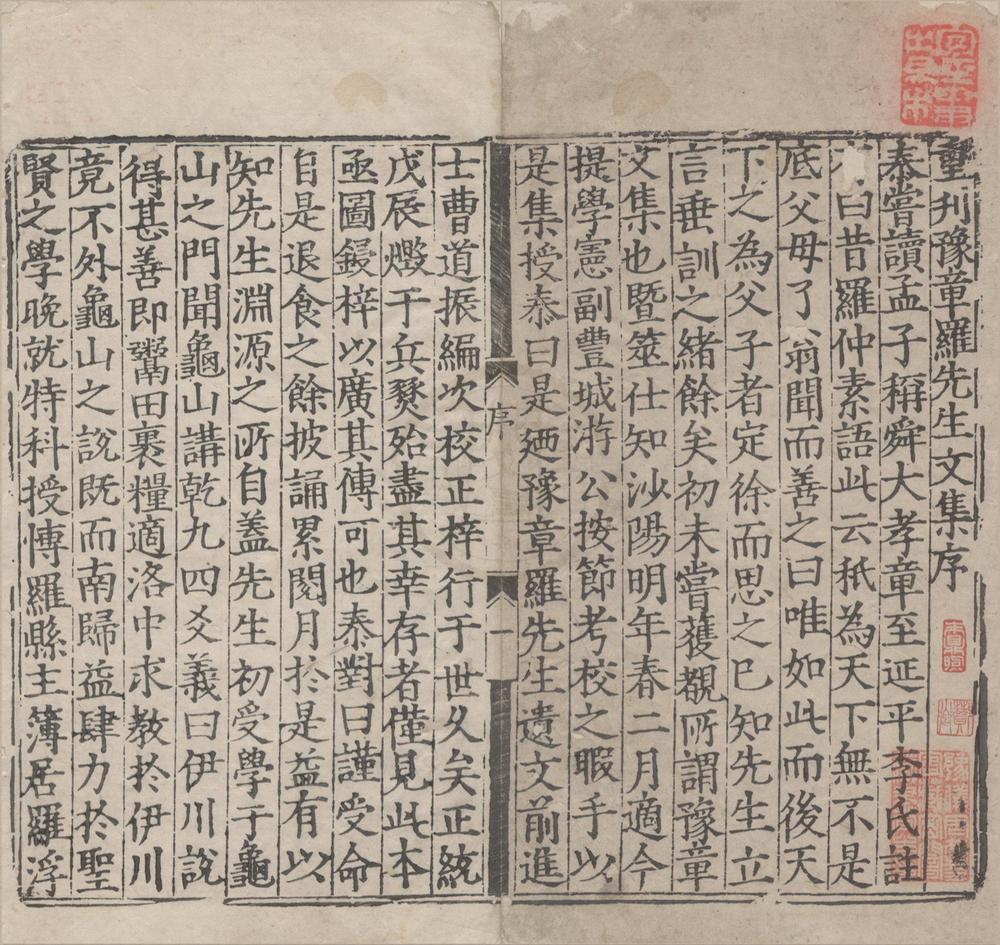 重刊豫章羅先生文集序
泰嘗讀孟子稱舜大孝章至延平李氏註
曰昔羅仲素語此云秖為天下無不是
底父母了翁聞而善之曰唯如此而後天
下之為父子者定徐而思之已知先生立
言垂訓之緒餘矣初未嘗獲覩所謂豫章
文集也暨筮仕知沙陽明年春二月適今
提學憲副豐城游公按節考校之暇手以
是集授泰曰是廼豫章羅先生遺文前進
序
一
士曹道振編次校正梓行于世久矣正統
戊辰燬于兵燹殆盡其幸存者僅見此本
亟圖鋟梓以廣其傳可也泰對曰謹受命
自是退食之餘披誦累閱月於是益有以
知先生淵源之所自蓋先生初受學于龜
山之門聞龜山講乾九四爻義曰伊川說
得甚善即鬻田裹糧適洛中求教於伊川
竟不外龜山之說既而南歸益肆力於聖
賢之學晚就特科授博羅縣主簿居羅浮